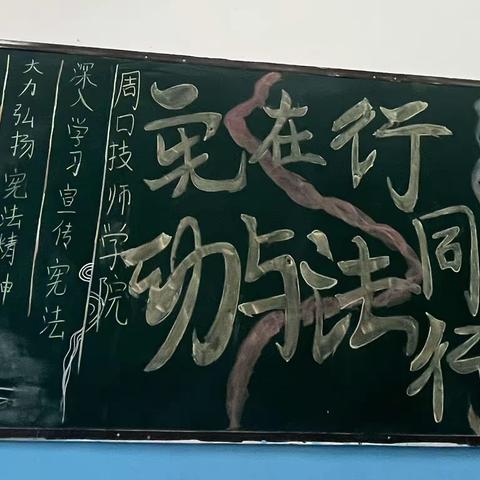 周口技师学院
深入学习宣传宪法
大力弘扬宪法精神
宪在行
动与法
同行